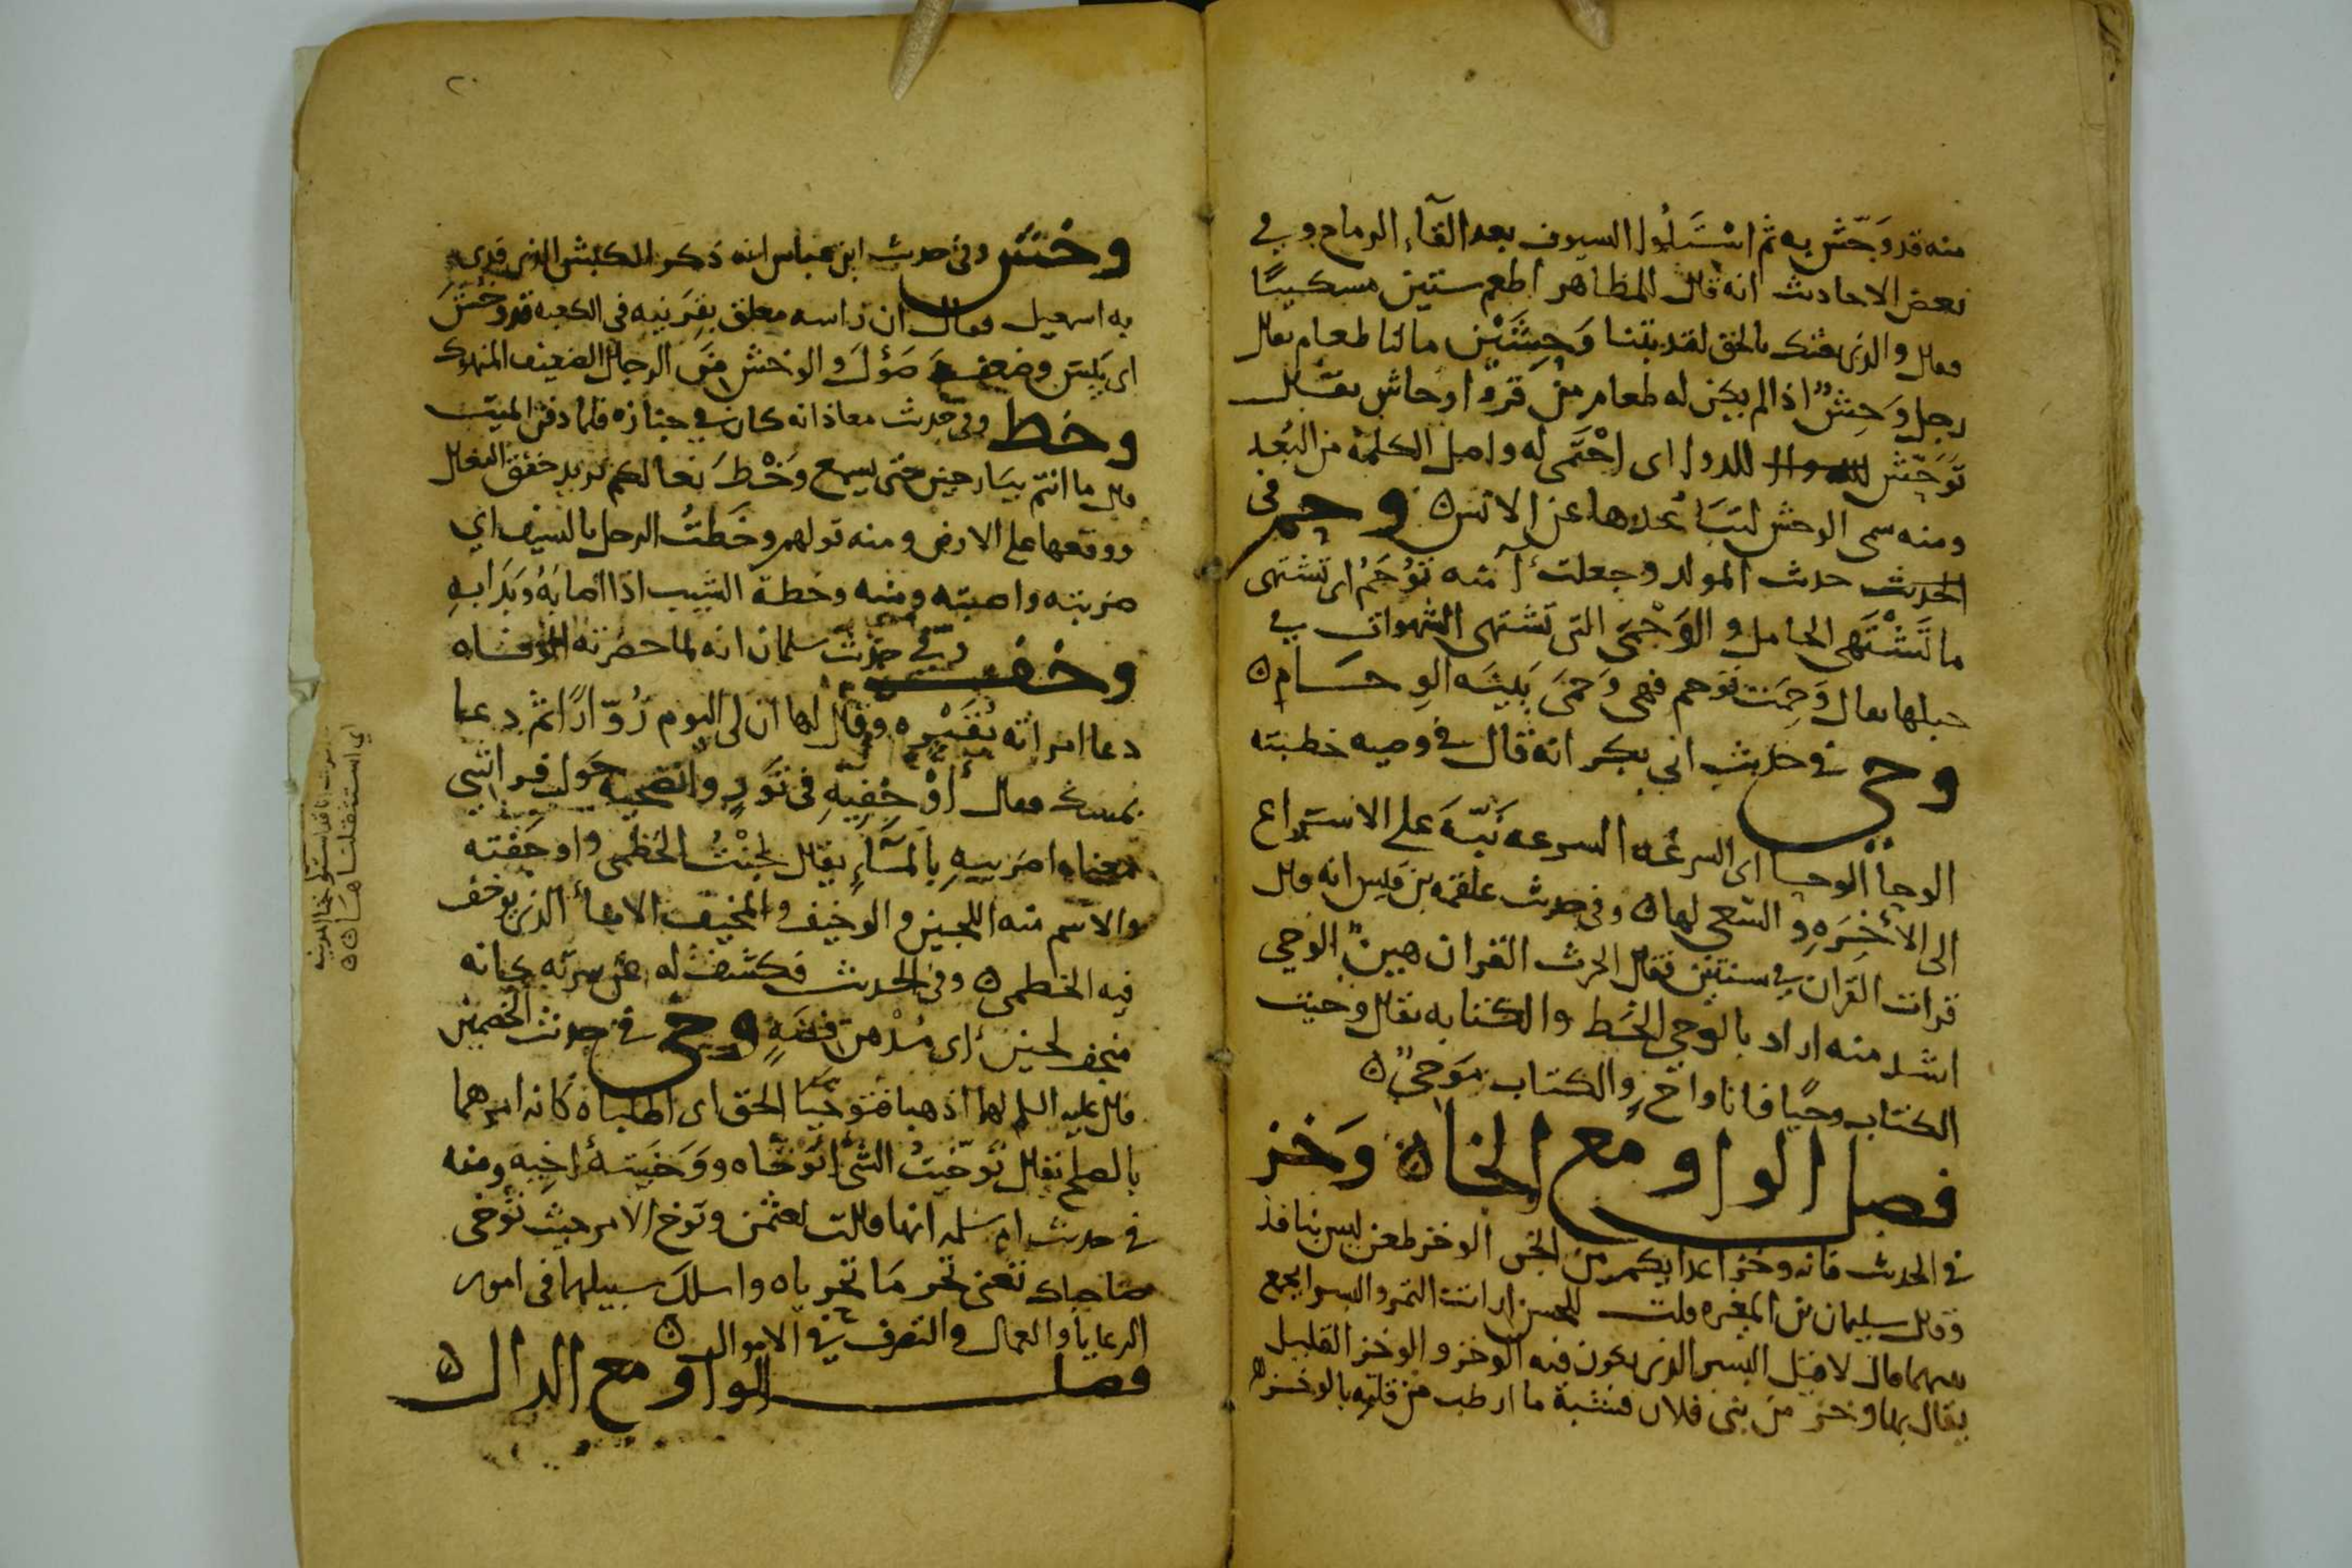 منه قد وَحّش به ثم اسْتَلُوا السيوف بعد القآء الرماح وفي
بعض الاحاديث انه قال للمظاهر اطعم ستين مسكينًا
فقال والذي بعثك بالحق لقد بتنا وَحِشَيْن ما لنا طعام يقال
رجل وَحِشٌ اذا لم يكن له طعام من قوم اوحاش يقال
تَوَحّش للدوا اى احْتَمى له واصل الكلمة من البُعد
ومنه سمى الوحش لتباعدها عن الانس ه وحم في
الحديث حديث المولد وجعلت آمنه تَوْحَمُ اى تشتهى
ما تَشْتَهى الحامل والوَحْمَى التى تشتهى الشهوات في
حبلها يقال وَحِمَت توحم فهى وَحْمَى بَيّنَه الوِحَام ه
وحى في حديث ابي بكر انه قال في وصيه خطبته
الوحا الوحا اى السرعه السرعه نَبّهَ على الاسراع
الى الأخِرَهِ والسّعي لها ه وفي حديث علقمه بن قيس انه قال
قرات القران في سنتين فقال الحرث القران هين الوحي
اشد منه اراد بالوحي الخط والكتابه يقال وحيت
الكتاب وحيًا فانا واحٍ والكتاب مَوحيٌ ه
فصل الواو مع الخاه وَخز
في الحديث فانه وخز اعدايكم من الجن الوخز طعن ليس بنافذ
وقال سليمان بن المغيره قلت للحسن ارايت التمر والبسر ايجمع
بينهما قال لا قيل البسر الذي يكون فيه الوخز والوخز القليل
يقال بها وخز من بنى فلان فشبه ما ارطب من قلته بالوخز ه
٢٠
وخش وفي حديث ابن عباس انه ذكر الكبش الذي فدى
به اسمعيل فقال ان راسه معلق بقَرنيه في الكعبه قد وخش
اى يَبِسَ وضعف وَضَؤلَ والوخش من الرجال الضعيف
وخط وفي حديث معاذ انه كان في جنازه فلما دفن الميت
قال ما انتم ببارحين حتى يسمع وَخْطَ نعالكم يريد خفق النعال
ووقعها على الارض ومنه قولهم وخَطتُ الرجل بالسيف اي
ضربته واصبته ومنه وخطة الشيب اذا اصابَهُ وبَدَا بِهِ
وخف وفي حديث سلمان انه لما حضرته الوفاه
دعا امراته بُقَيْرَه وقال لها ان لى اليوم زُوّارًا ثم دعا
بمسك فقال أوْخِفِيهِ في تَوْرٍ وانضحيه حَول فراشي
معناه اضربيهِ بالمآءِ يقال لجنْتُ الخطمى واوخفته
والاسم منه اللجين والوخيف والميخف الاناء الذي يوخف
فيه الخطمى ه وفي الحديث فكشف له عن سرته كانه
ميخف لجين أى مُدْهن فضةٍ وخى في حديث الخصمين
قال عليه السلم لهما اذهبا فتوخّيَا الحق اى اطلباه كانه امرهما
بالصلح يقال توخّيتُ الشئَ اتوَخّاه ووَخَيته أخِيه ومنه
في حديث ام سلمه انها قالت لعثمن وتوخ الامر حيث تَوخى
صاحباك تعنى تحر مَا تحرياه واسلك سبيلهما في امور
الرعايا والعمال والتصرف في الاموال ه
فصل الواو مع الدال ه
اي استثقلنا هَاه